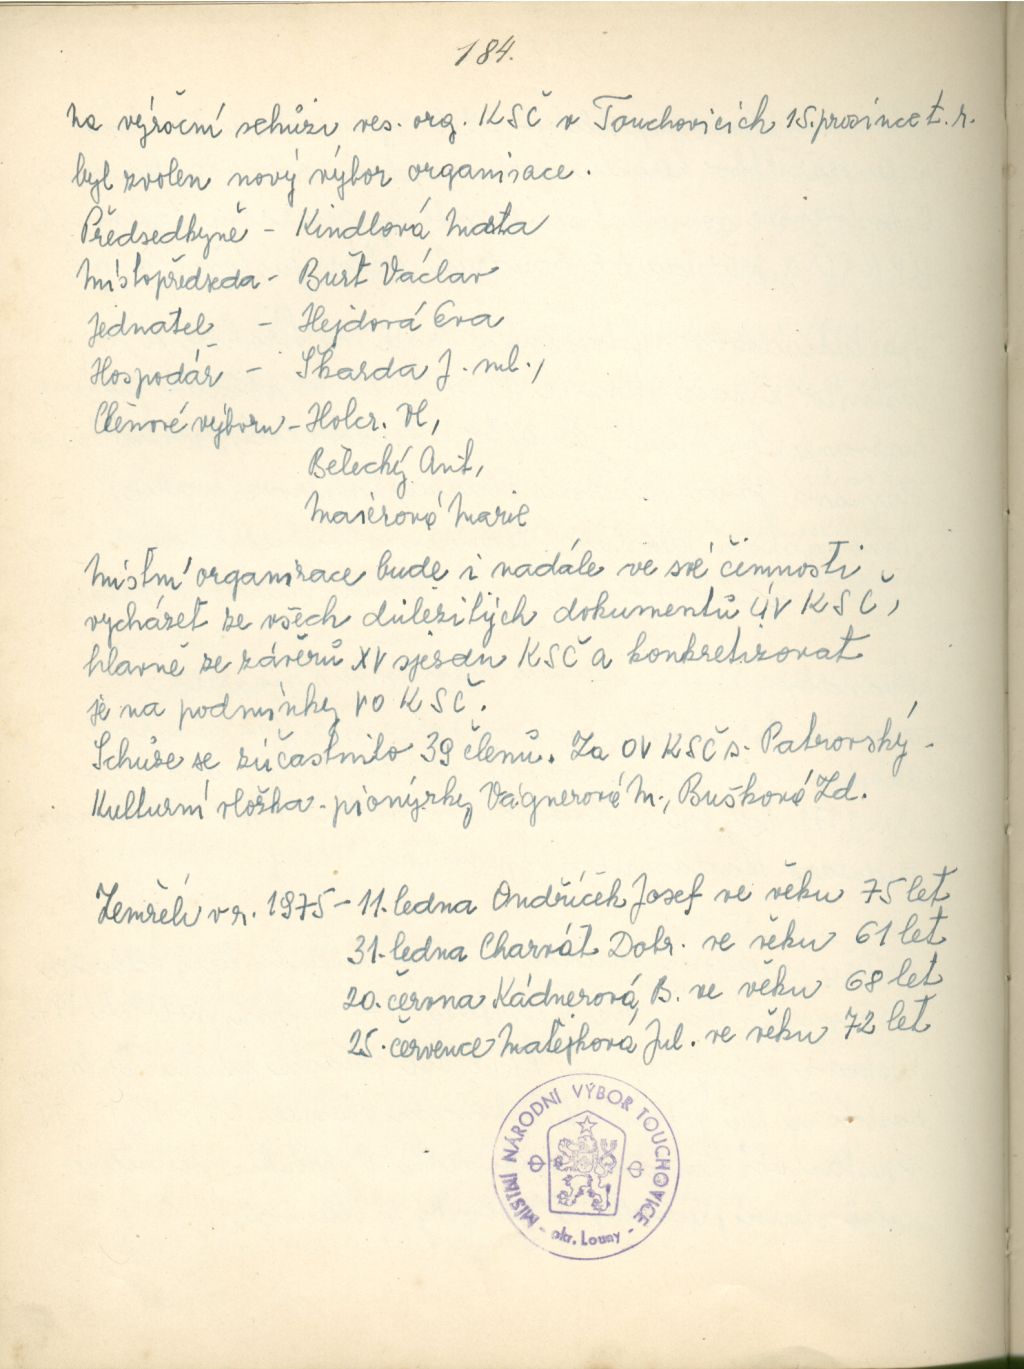 184.
Na výroční schůzi ves. org. KSČ v Touchovicích 15. prosince t. r.
byl zvolen nový výbor organisace.
Předsedkyně - Kindlová Marta
Místopředseda - Burt Václav
Jednatel - Hejdová Eva
Hospodář - Škarda J. ml.,
Členové výboru - Holcr. Vl,
Beťecký Ant,
Maierová Marie
Místní organizace bude i nadále ve své činnosti
vycházet ze všech důležitých dokumentů ÚV KSČ,
hlavně ze závěrů XV sjezdu KSČ a konkretizovat
je na podmínky VO KSČ.
Schůze se zúčastnilo 39 členů. Za OV KSČ s. Patrovský.
Kulturní vložka - pionýrky Vágnerová M., Bušková Zd.
Zemřeli v r. 1975 - 11. ledna Ondříček Josef ve věku 75 let
31. ledna Charvát Dobr. ve věku 61 let
20. června Kádnerová B. ve věku 68 let
25. července Matějková Jul. ve věku 72 let
MÍSTNÍ NÁRODNÍ VÝBOR TOUCHOVICE
- okr. Louny -